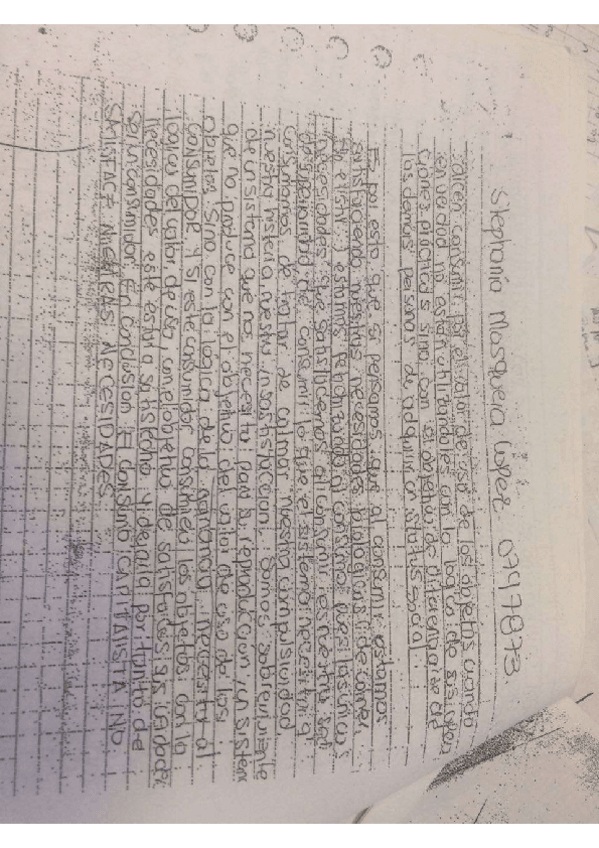 Stephania Mosquera Lopez 0747873
dicen consumir por el valor de uso de los objetos cuando
en verdad no están utilizandoles con la logica de
ciones prácticas sino con el objetivo de diferenciarse de
las demás personas de adquirir un status social.
Es por esto que si pensamos que al consumir estamos
satisfaciendo nuestras necesidades biologicas (de comer,
de estar) estamos el consumo pues las unicas
necesidades que satisfacemos al consumir es nuestra
de consumir lo que el sistema necesita
Consumamos de tratar de calmar nuestra compulsividad,
nuestra histeria, nuestra insatisfaccion, somos
de un sistema que nos necesita para su reproduccion, un sistema
que no produce con el objetivo del valor de uso de los
objetos sino con la lógica de la ganancia necesita al
consumidor y si este consumidor consumiera los objetos con la
logica del valor de uso, con el objetivo de satisfacer sus
necesidades este estaria satisfecho y dejaria por tanto de
ser un consumidor. En conclusion EL CONSUMO CAPITALISTA NO
SATISFACE NUESTRAS NECESIDADES.